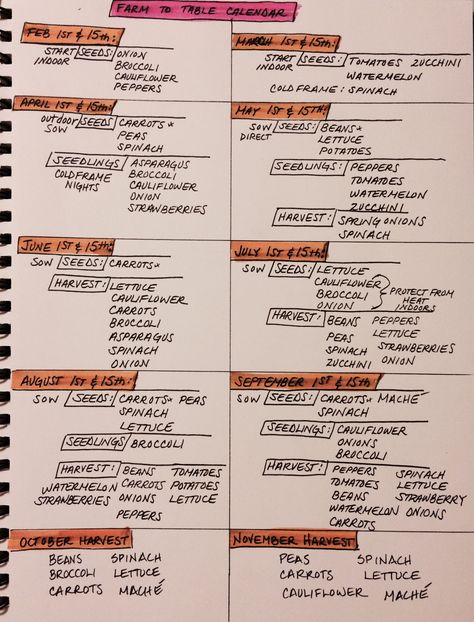 FARM TO TABLE CALENDAR
FEB 1ST & 15TH:
START INDOOR SEEDS: ONION
BROCCOLI
CAULIFLOWER
PEPPERS
MARCH 1ST & 15TH:
START INDOOR SEEDS: TOMATOES ZUCCHINI
WATERMELON
COLD FRAME: SPINACH
APRIL 1ST & 15TH:
OUTDOOR SOW SEEDS CARROTS*
PEAS
SPINACH
SEEDLINGS ASPARAGUS
COLDFRAME NIGHTS BROCCOLI
CAULIFLOWER
ONION
STRAWBERRIES
MAY 1ST & 15TH:
SOW DIRECT SEEDS: BEANS*
LETTUCE
POTATOES
SEEDLINGS: PEPPERS
TOMATOES
WATERMELON
ZUCCHINI
HARVEST: SPRING ONIONS
SPINACH
JUNE 1ST & 15TH:
SOW SEEDS: CARROTS*
HARVEST: LETTUCE
CAULIFLOWER
CARROTS
BROCCOLI
ASPARAGUS
SPINACH
ONION
JULY 1ST & 15TH:
SOW SEEDS: LETTUCE
CAULIFLOWER
BROCCOLI
ONION
PROTECT FROM
HEAT
INDOORS
HARVEST: BEANS PEPPERS
PEAS LETTUCE
SPINACH STRAWBERRIES
ZUCCHINI ONION
AUGUST 1ST & 15TH:
SOW SEEDS: CARROTS* PEAS
SPINACH
LETTUCE
SEEDLINGS BROCCOLI
HARVEST: BEANS TOMATOES
WATERMELON CARROTS POTATOES
STRAWBERRIES ONIONS LETTUCE
PEPPERS
SEPTEMBER 1ST & 15TH:
SOW SEEDS: CARROTS* MACHÉ
SPINACH
SEEDLINGS: CAULIFLOWER
ONIONS
BROCCOLI
HARVEST: PEPPERS SPINACH
TOMATOES LETTUCE
BEANS STRAWBERRY
WATERMELON ONIONS
CARROTS
OCTOBER HARVEST
BEANS SPINACH
BROCCOLI LETTUCE
CARROTS MACHÉ
NOVEMBER HARVEST
PEAS SPINACH
CARROTS LETTUCE
CAULIFLOWER MACHÉ